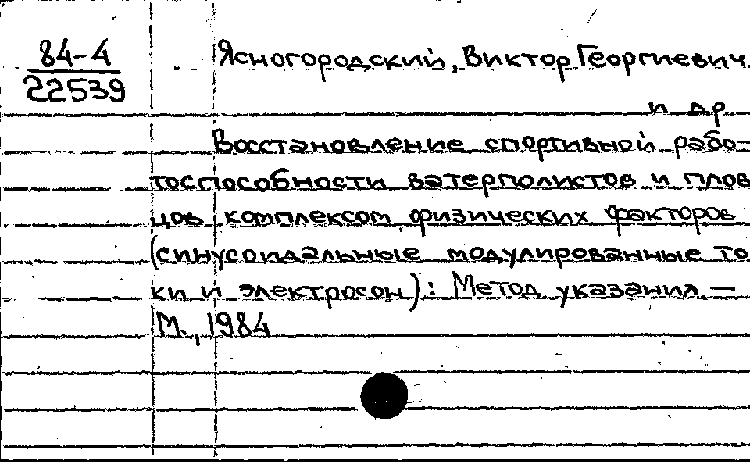 84-4
22539
Ясногородский, Виктор Георгиевич
и др
Восстановление спортивной рабо-
тоспособности ватерполистов и плов
цов комплексом физических факторов
(синусоидальные модулированные то
ки и электросон): Метод указания. —
М., 1984